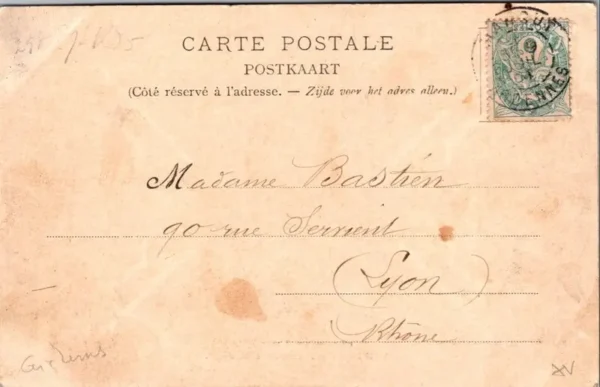 CARTE POSTALE
POSTKAART
(Côté réservé à l'adresse. — Zijde voor het adres alleen.)
Madame Bastien
90 rue Servient
(Lyon)
Rhône